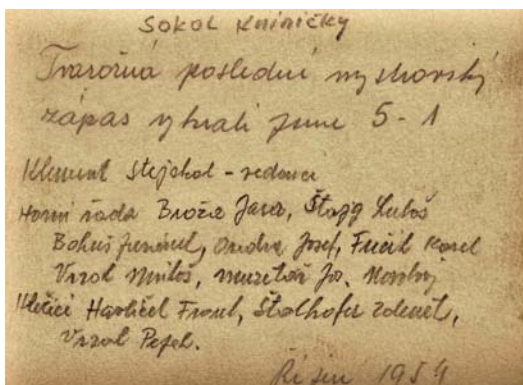 Sokol Kníničky
Tvarožná poslední
zápas vyhráli jsme 5-1
Klement Stejskal - vedoucí
Horní řada Brože Jara, Luboš
Bohuš, Ondra Josef, Fučík Karel
Vrzal Miloš, Jos. Novotný
Klečící Havlíček Frant, Štolhofer Zdeněk,
Vrzal Pepek.
Říjen 1954